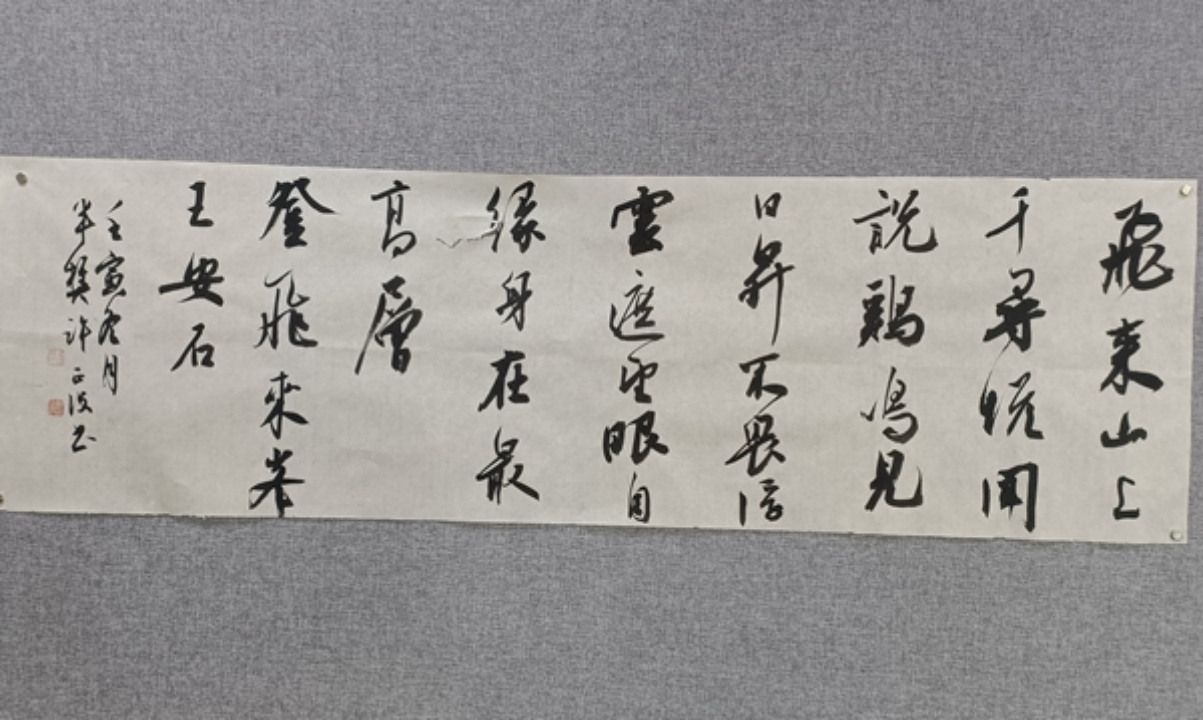 飛来山上
千尋塔聞
説鷄鳴見
日昇不畏浮
雲遮望眼自
緣身在最
高層
登飛來峯
王安石
壬寅冬月
半許正波书